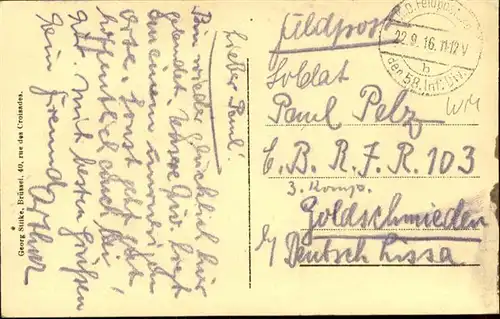 Lieber Paul!
Bin wieder glücklich hier
gelandet. Unsere Div. liegt
an einem unruhigen
Orte. Sonst geht es
hoffentlich auch bei
gut. Mit besten Grüßen
Dein Freund Arthur
Georg Stilke, Brüssel, 40, rue des Croisades.
Feldpost
Soldat
Paul Pelz
E. B. R. J. R. 103
3. Komp.
Goldschmieden
b/ Deutsch Lissa.
22.9.16. 11-12 V
b
der 58. Inf. Div.